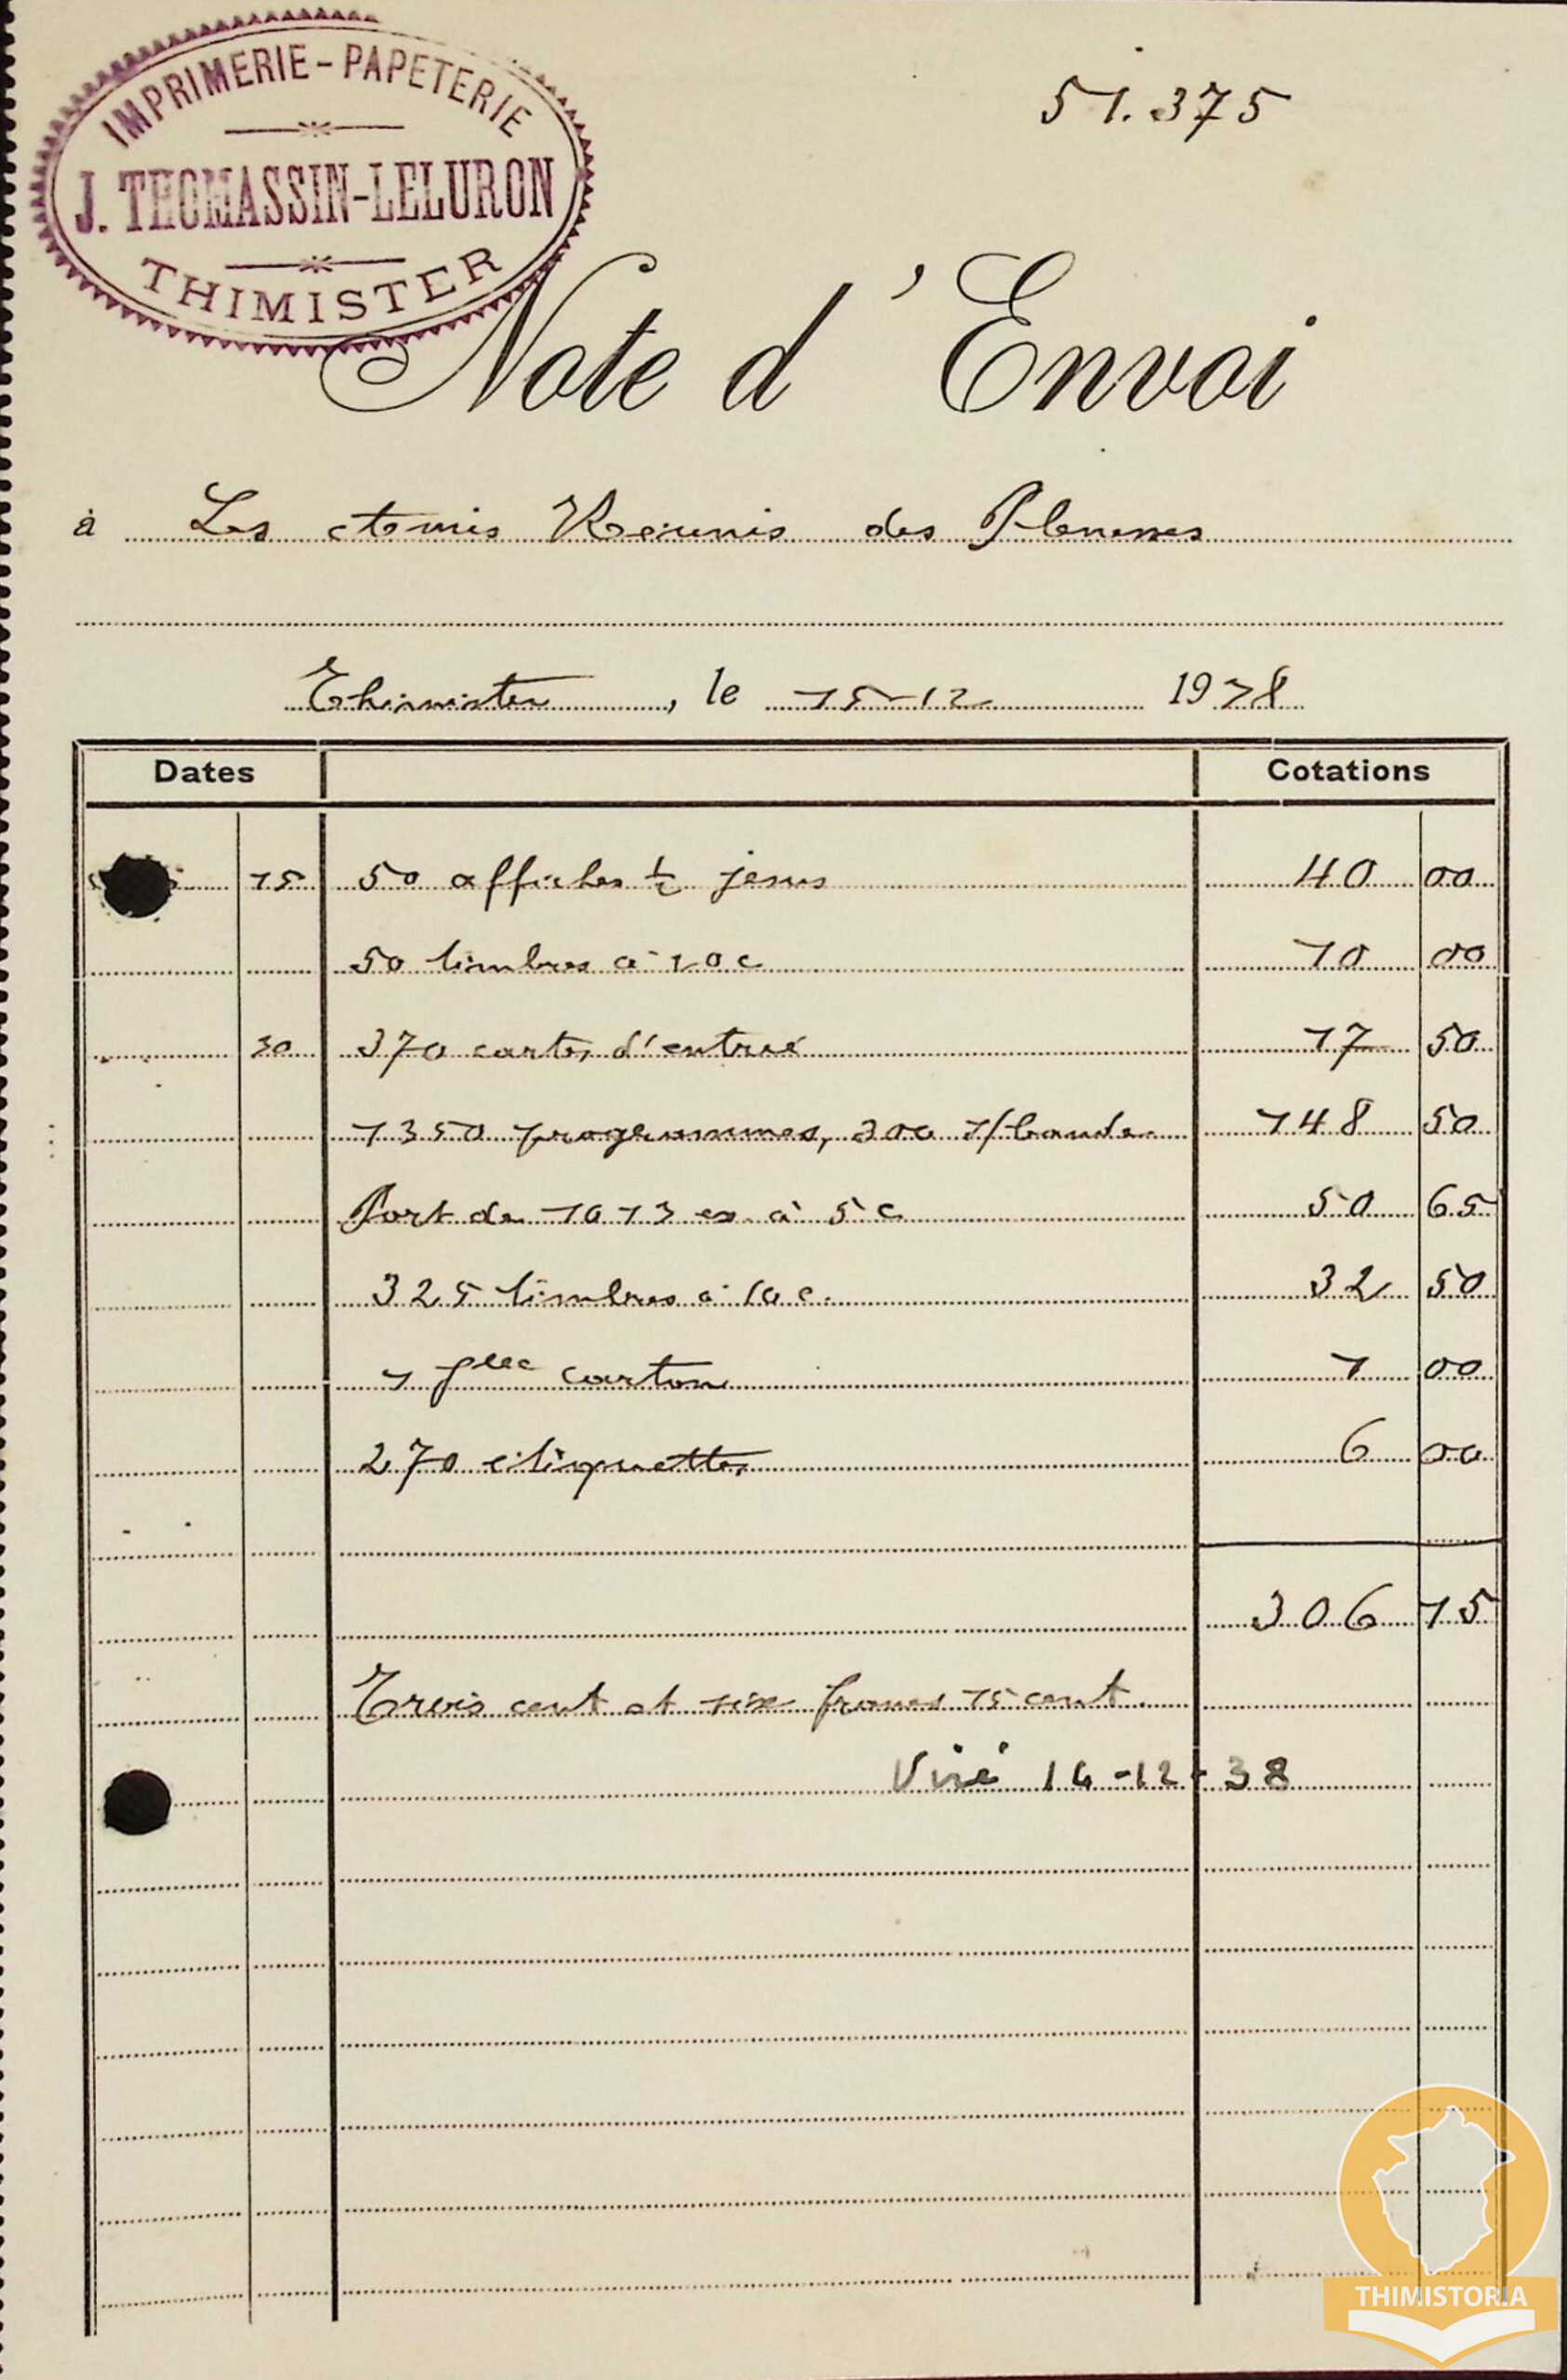 IMPRIMERIE-PAPETERIE
J. THOMASSIN-LELURON
THIMISTER
51.375
Note d'Envoi
à Les Amis Réunis des Plenesses
Thimister, le 15-12 1938
Dates Cotations
15 50 affiches ½ jesus 40 00
50 timbres à 20 c 10 00
30 370 cartes d'entrée 17 50
1350 programmes, 300 s/bande 148 50
Port de 1013 ex à 5 c 50 65
325 timbres à 10 c. 32 50
1 flle carton 1 00
270 étiquettes 6 00
306 15
Trois cent et six francs 15 cent.
Viré 16-12-38
THIMISTORIA